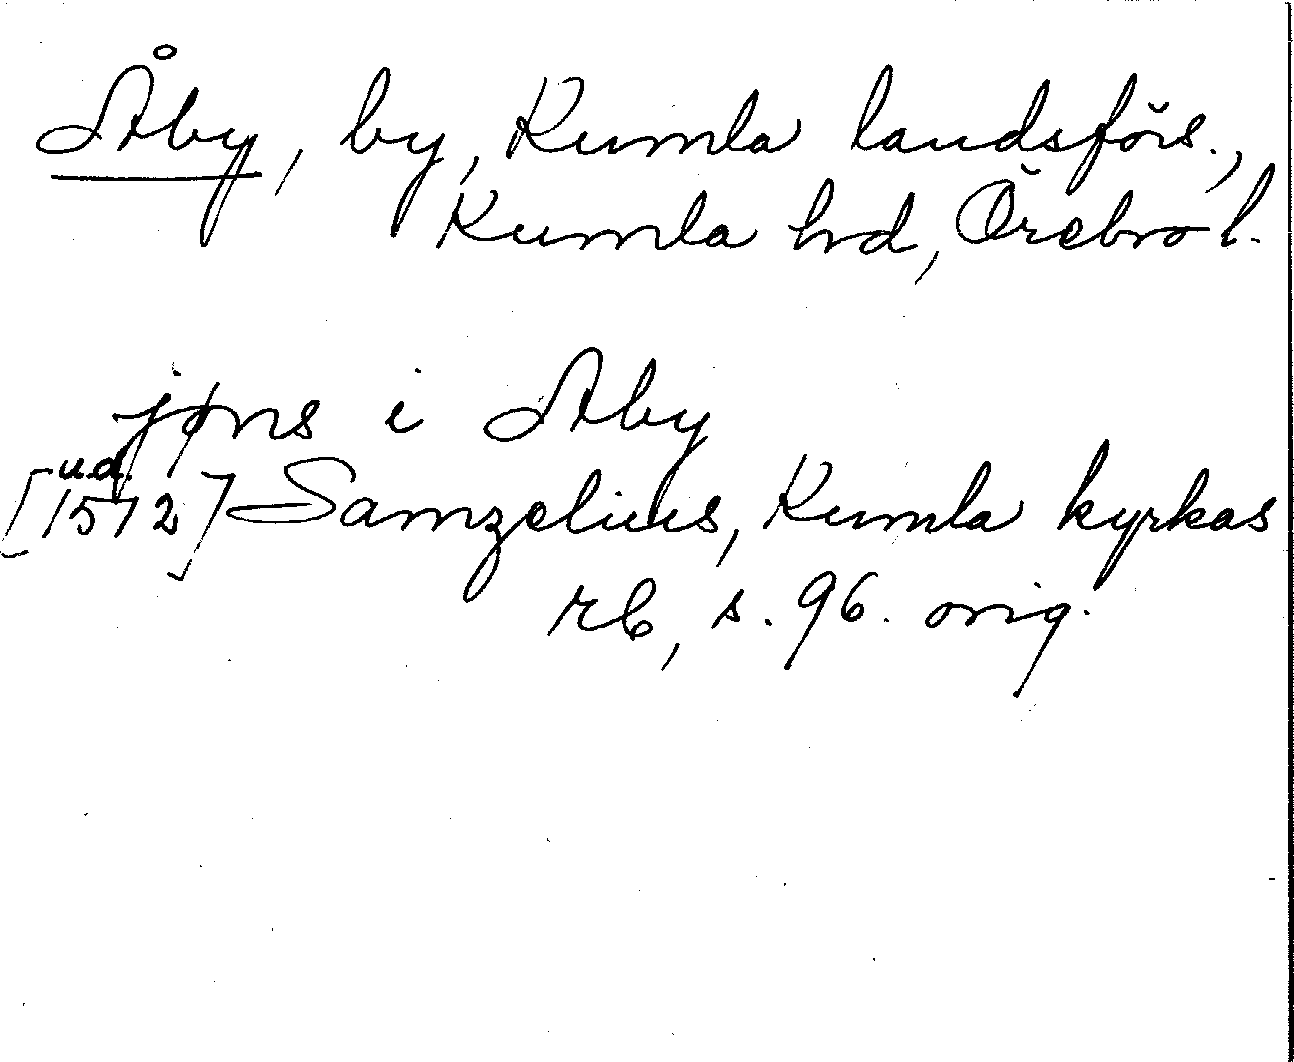 Åby, by, Kumla landsförs.,
Kumla hd, Örebro l.
jøns i Aby
u.d.
[1572] Samzelius, Kumla kyrkas
rb, s. 96. orig.